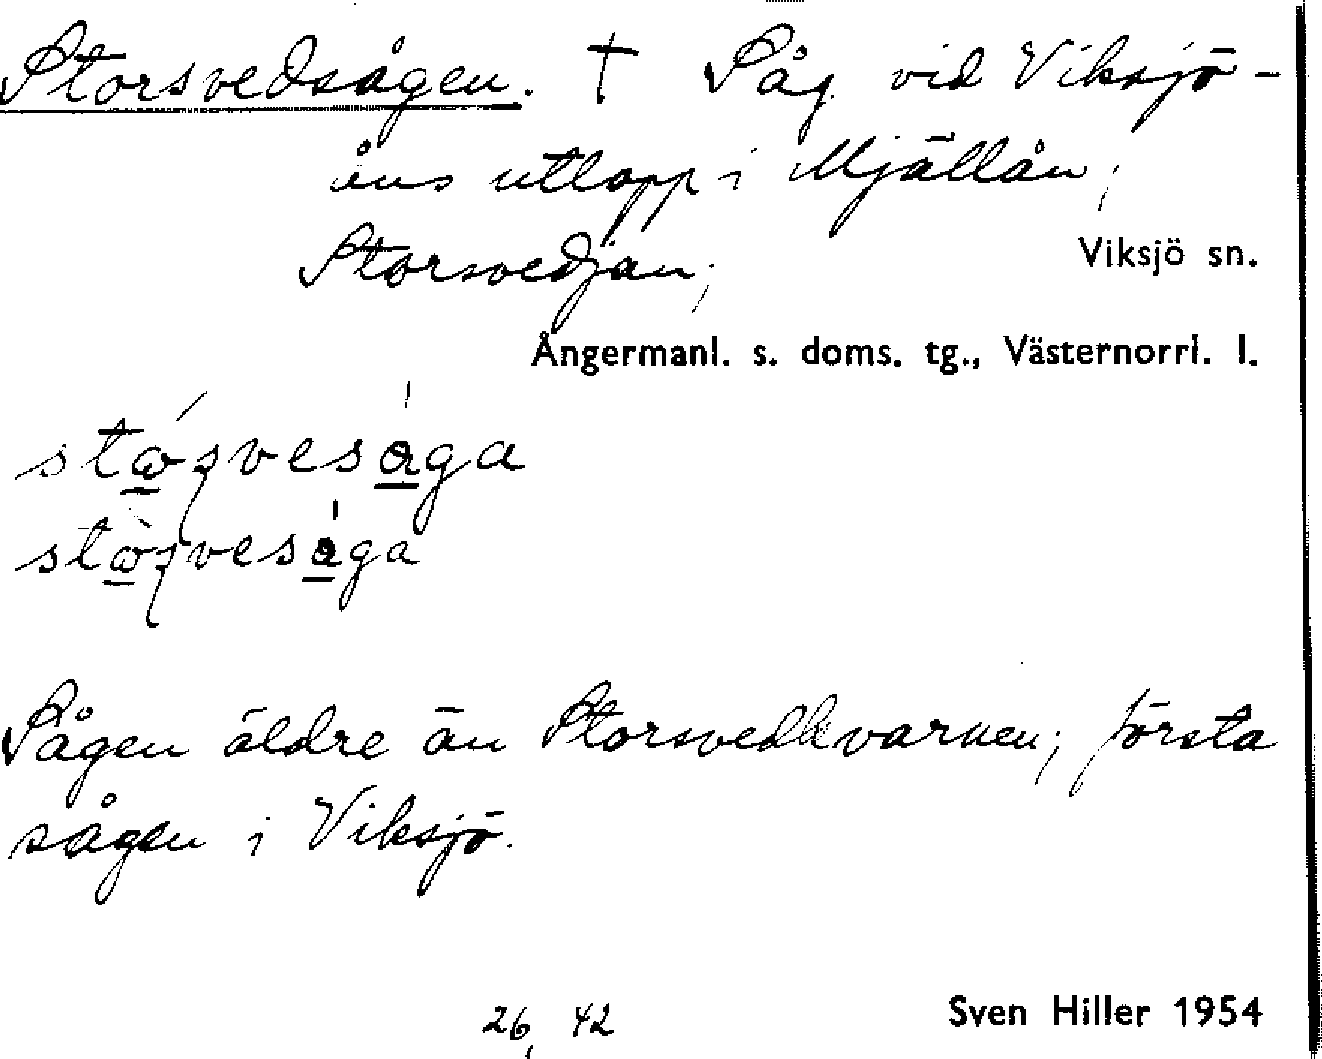 Storsvedsågen. † Såg vid Viksjö-
åns utlopp i Mjällån;
Storsvedjan; Viksjö sn.
Ångermanl. s. doms. tg., Västernorrl. l.
Sågen äldre än Storsvedkvarnen; första
sågen i Viksjö.
26, 42 Sven Hiller 1954